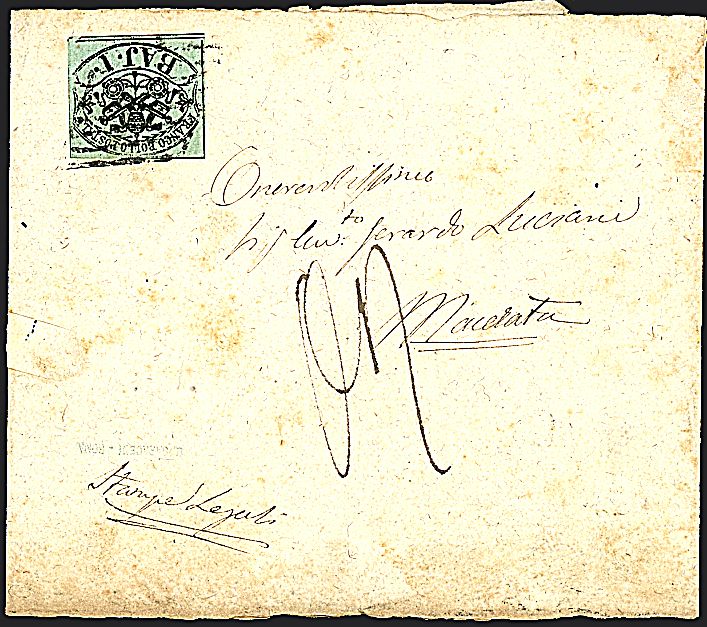 BAJ. 1.
FRANCO BOLLO POSTALE
Onorandissimo
Sig. Avv.to Gerardo Luciani
Macerata
Stampe Legali